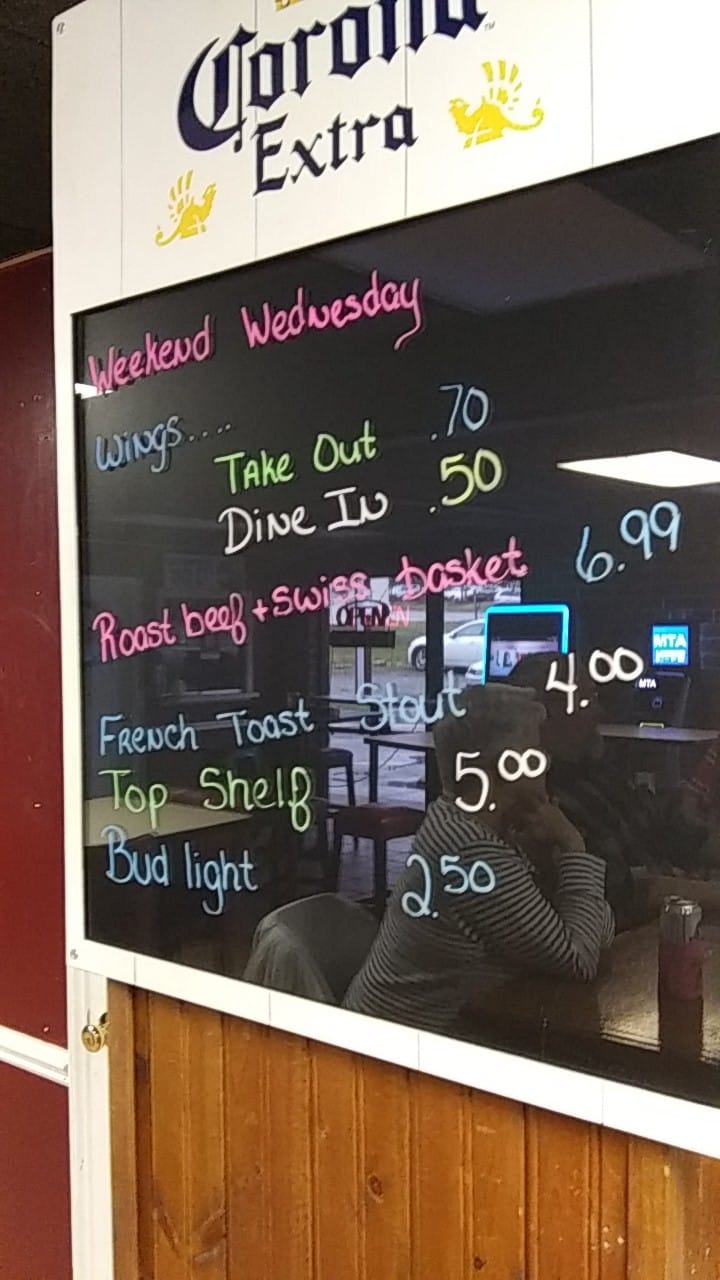 Corona
Extra
Weekend Wednesday
Wings.... 
Take Out .70
Dine In .50
Roast beef + swiss basket 6.99
French Toast Stout 4.00
Top Shelf 5.00
Bud light 2.50
OPEN
MTA
MTA